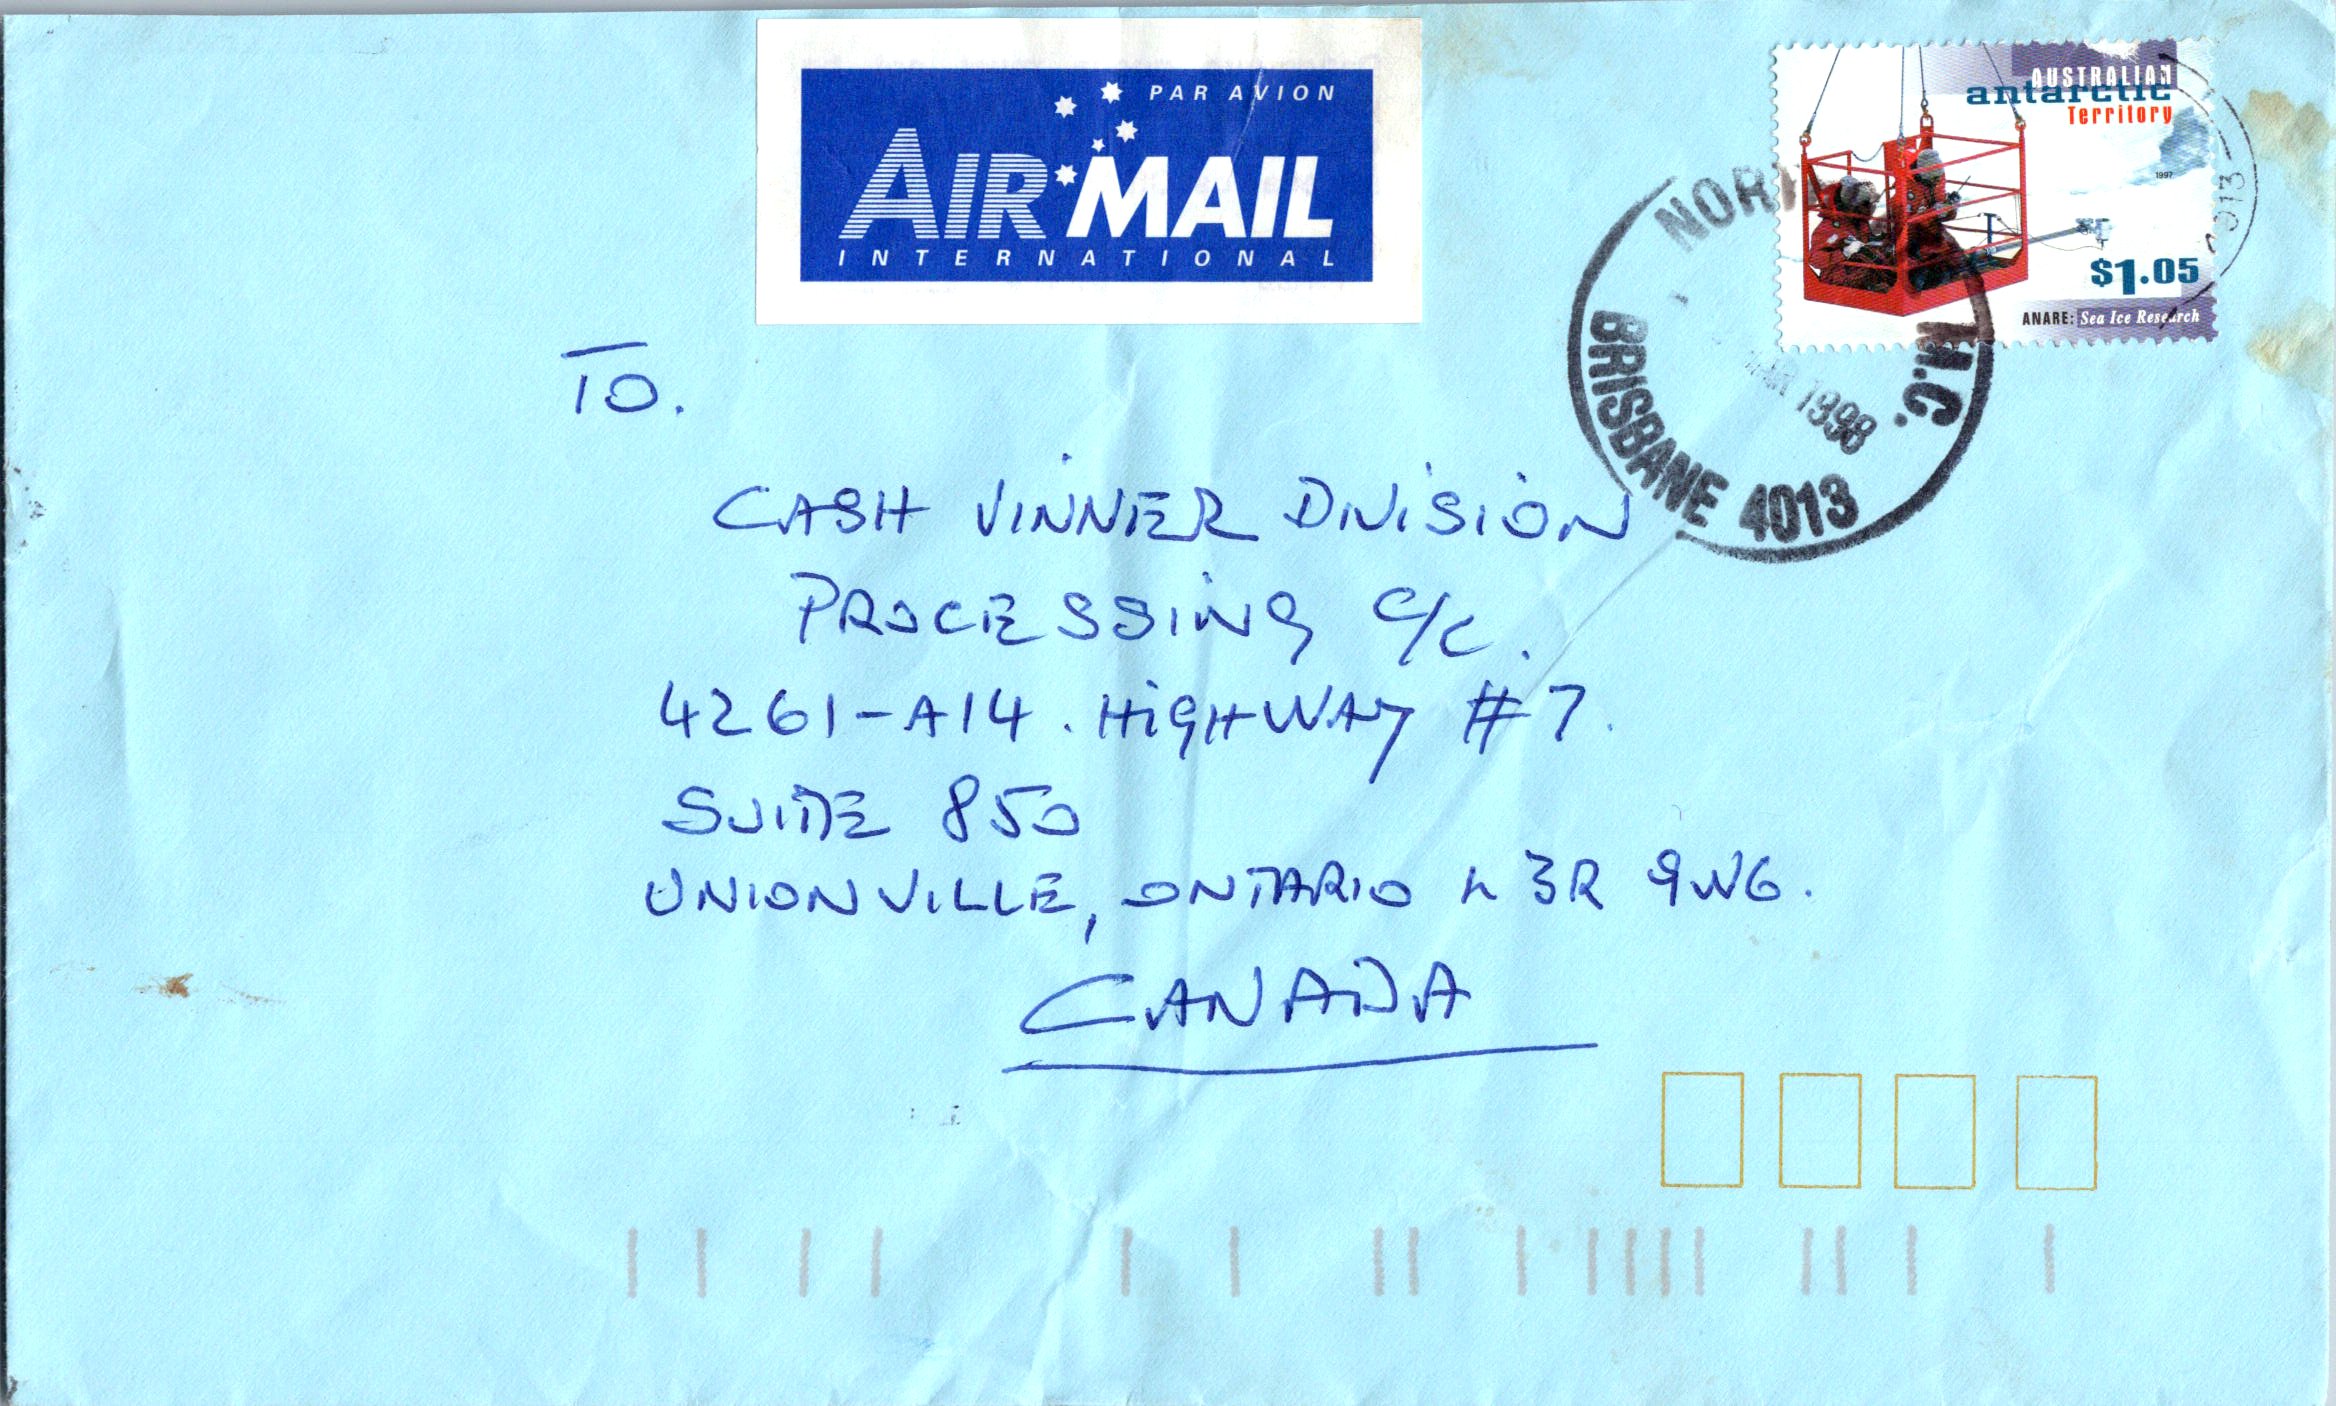 PAR AVION
AIR MAIL
INTERNATIONAL
AUSTRALIAN
antarctic
Territory
1997
$1.05
ANARE: Sea Ice Research
M.C.
BRISBANE 4013
1998
TO.
CASH VINNER DIVISION
PROCESSING C/C.
4261-A14. HIGHWAY #7.
SUITE 850
UNIONVILLE, ONTARIO L3R 9W6.
CANADA